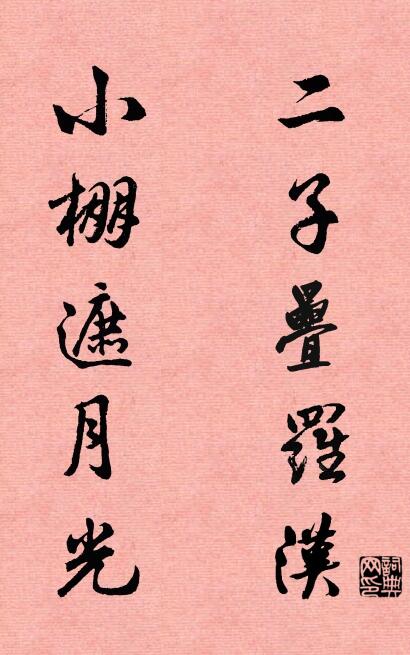 二子疊羅漢
小棚遮月光
詞典网印